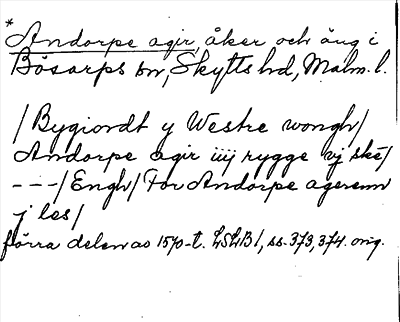 * Andorpe agir, åker och äng i
Bösarps sn, Skytts hd, Malm. l.
/Bygiordt y Westre wongh/
Andorpe agir iiij rygge vj ske/
---/Engh/ For Andorpe agerenn
j les/
förra delen av 1570-t. LSLB1, ss. 373, 374. orig.